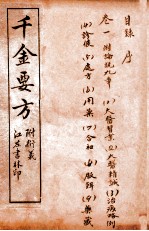 目錄 序
卷一 附論說九章
(1)大醫習業 (2)大醫精誠 (3)治病略例
(4)診候 (5)處方 (6)用藥 (7)合和 (8)服餌 (9)藥藏
千金要方
附衍義
江左書林印